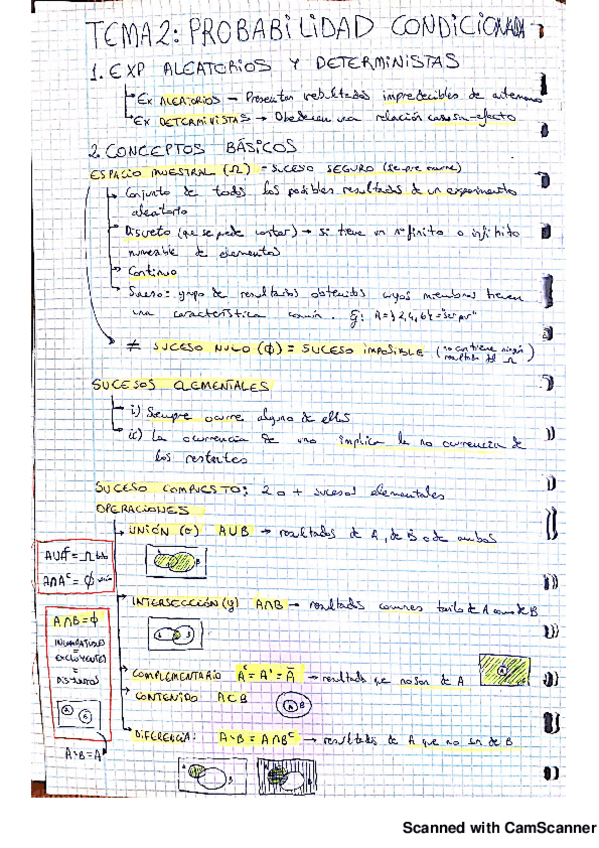 TEMA 2: PROBABILIDAD CONDICIONADA
1. EXP ALEATORIOS Y DETERMINISTAS
EX ALEATORIOS → Presentan resultados impredecibles de antemano
EX DETERMINISTAS → Obedecen una relación causa-efecto
2. CONCEPTOS BÁSICOS
ESPACIO MUESTRAL (Ω) = SUCESO SEGURO (siempre ocurre)
Conjunto de todos los posibles resultados de un experimento
aleatorio
Discreto (que se puede contar) → si tiene un nº finito o infinito
numerable de elementos
Continuo
Suceso: grupo de resultados obtenidos cuyos miembros tienen
una característica común. Ej: A={2,4,6}="ser par"
≠ SUCESO NULO (∅) = SUCESO IMPOSIBLE (no contiene ningún
resultado del Ω)
SUCESOS ELEMENTALES
i) Siempre ocurre alguno de ellos
ii) La ocurrencia de uno implica la no ocurrencia de
los restantes
SUCESO COMPUESTO: 2 o + sucesos elementales
OPERACIONES
UNIÓN (o) A∪B → resultados de A, de B o de ambos
A∪Aᶜ = Ω
A∩Aᶜ = ∅
B
INTERSECCIÓN (y) A∩B → resultados comunes tanto de A como de B
A∩B=∅
INCOMPATIBLES
=
EXCLUYENTES
=
DISJUNTOS
A B
COMPLEMENTARIO Aᶜ = A' = Ā → resultados que no son de A
A
CONTENIDO A⊂B
A B
DIFERENCIA: A-B = A∩Bᶜ → resultados de A que no son de B
A-B=A
A B
Scanned with CamScanner